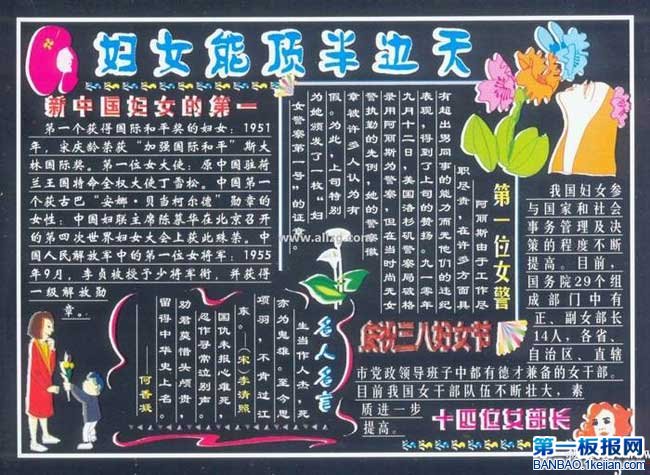 妇女能顶半边天
新中国妇女的第一
第一个获得国际和平奖的妇女：1951
年，宋庆龄荣获“加强国际和平”斯大
林国际奖。第一位女大使：原中国驻荷
兰王国特命全权大使丁雪松。中国第一
个获古巴“安娜·贝当柯尔德”勋章的
女性：中国妇联主席陈慕华在北京召开
的第四次世界妇女大会上获此殊荣。中
国人民解放军中的第一位女将军：1955
年9月，李贞被授予少将军衔，并获得
一级解放勋
章。
第一位女警
阿丽斯由于工作尽
职尽责，在许多方面具
有超出男同事的能力而无他们的违纪
表现，得到了上司的赞扬。九一零年
九月十二日，美国洛杉矶警察局破格
录用阿丽斯为警察，但在当时尚无女
警执勤的先例，她的警察徽
章被许多人认为有
假。为此，上司特别
为她颁发了一枚“妇
女警察第一号”的证章。
我国妇女参
与国家和社会
事务管理及决
策的程度不断
提高。目前，
国务院29个组
成部门中有
正、副女部长
14人，各省、
自治区、直辖
市党政领导班子中都有德才兼备的女干部。
目前我国女干部队伍不断壮大，素
质进一步
提高。
十四位女部长
庆祝三八妇女节
名人名言
生当作人杰，死
亦为鬼雄。至今思
项羽，不肯过江
东。（宋）李清照
国仇未报心难死，
忍作寻常泣别声。
劝君莫惜头颅贵，
留得中华史上名。
——何香凝
第一板报网
BANBAO.1kejian.com